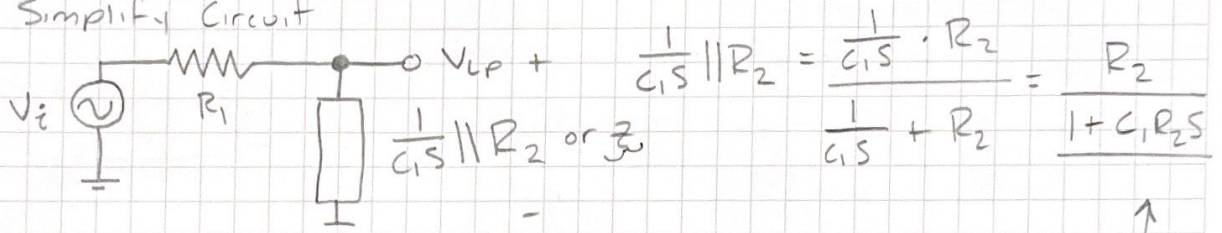 Simplify Circuit
Vi R1 VLP +
1/(C1S) || R2 or Z
-
1/(C1S) || R2 = (1/(C1S) · R2) / (1/(C1S) + R2) = R2 / (1 + C1R2S)
↑